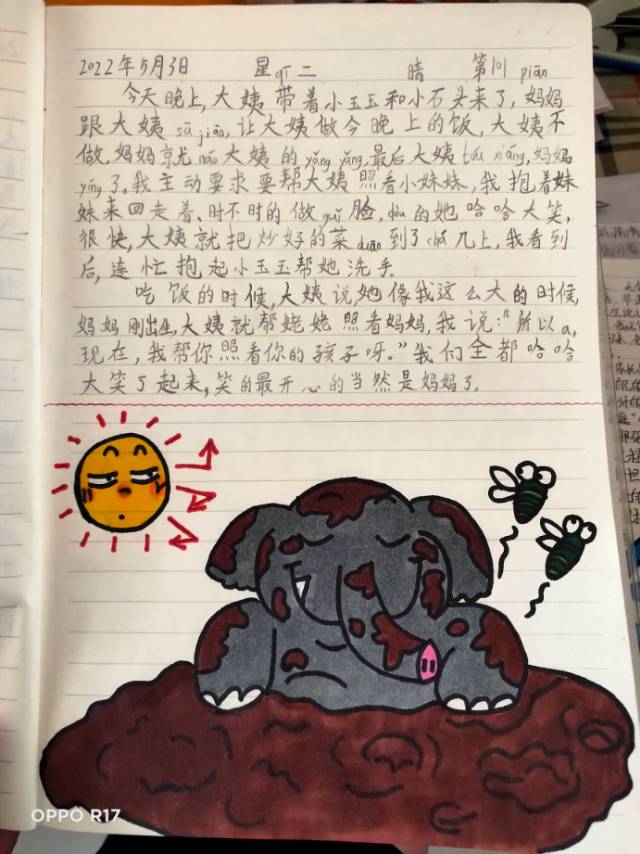 2022年5月3日 星qī二 晴 第101piān
今天晚上,大姨带着小玉玉和小石头来了,妈妈
跟大姨sā jiāo,让大姨做今晚上的饭,大姨不
做,妈妈就náo大姨的yǎng yǎng,最后大姨tóu xiáng,妈妈
yíng了。我主动要求要帮大姨照看小妹妹,我抱着妹
妹来回走着、时不时的做guǐ脸,dòu的她哈哈大笑,
很快,大姨就把炒好的菜duān到了chá几上,我看到
后,连忙抱起小玉玉帮她洗手.
吃饭的时候,大姨说她像我这么大的时候,
妈妈刚出生,大姨就帮姥姥照看妈妈,我说:"所以a,
现在,我帮你照看你的孩子呀。"我们全都哈哈
大笑了起来,笑的最开心的当然是妈妈了.
OPPO R17